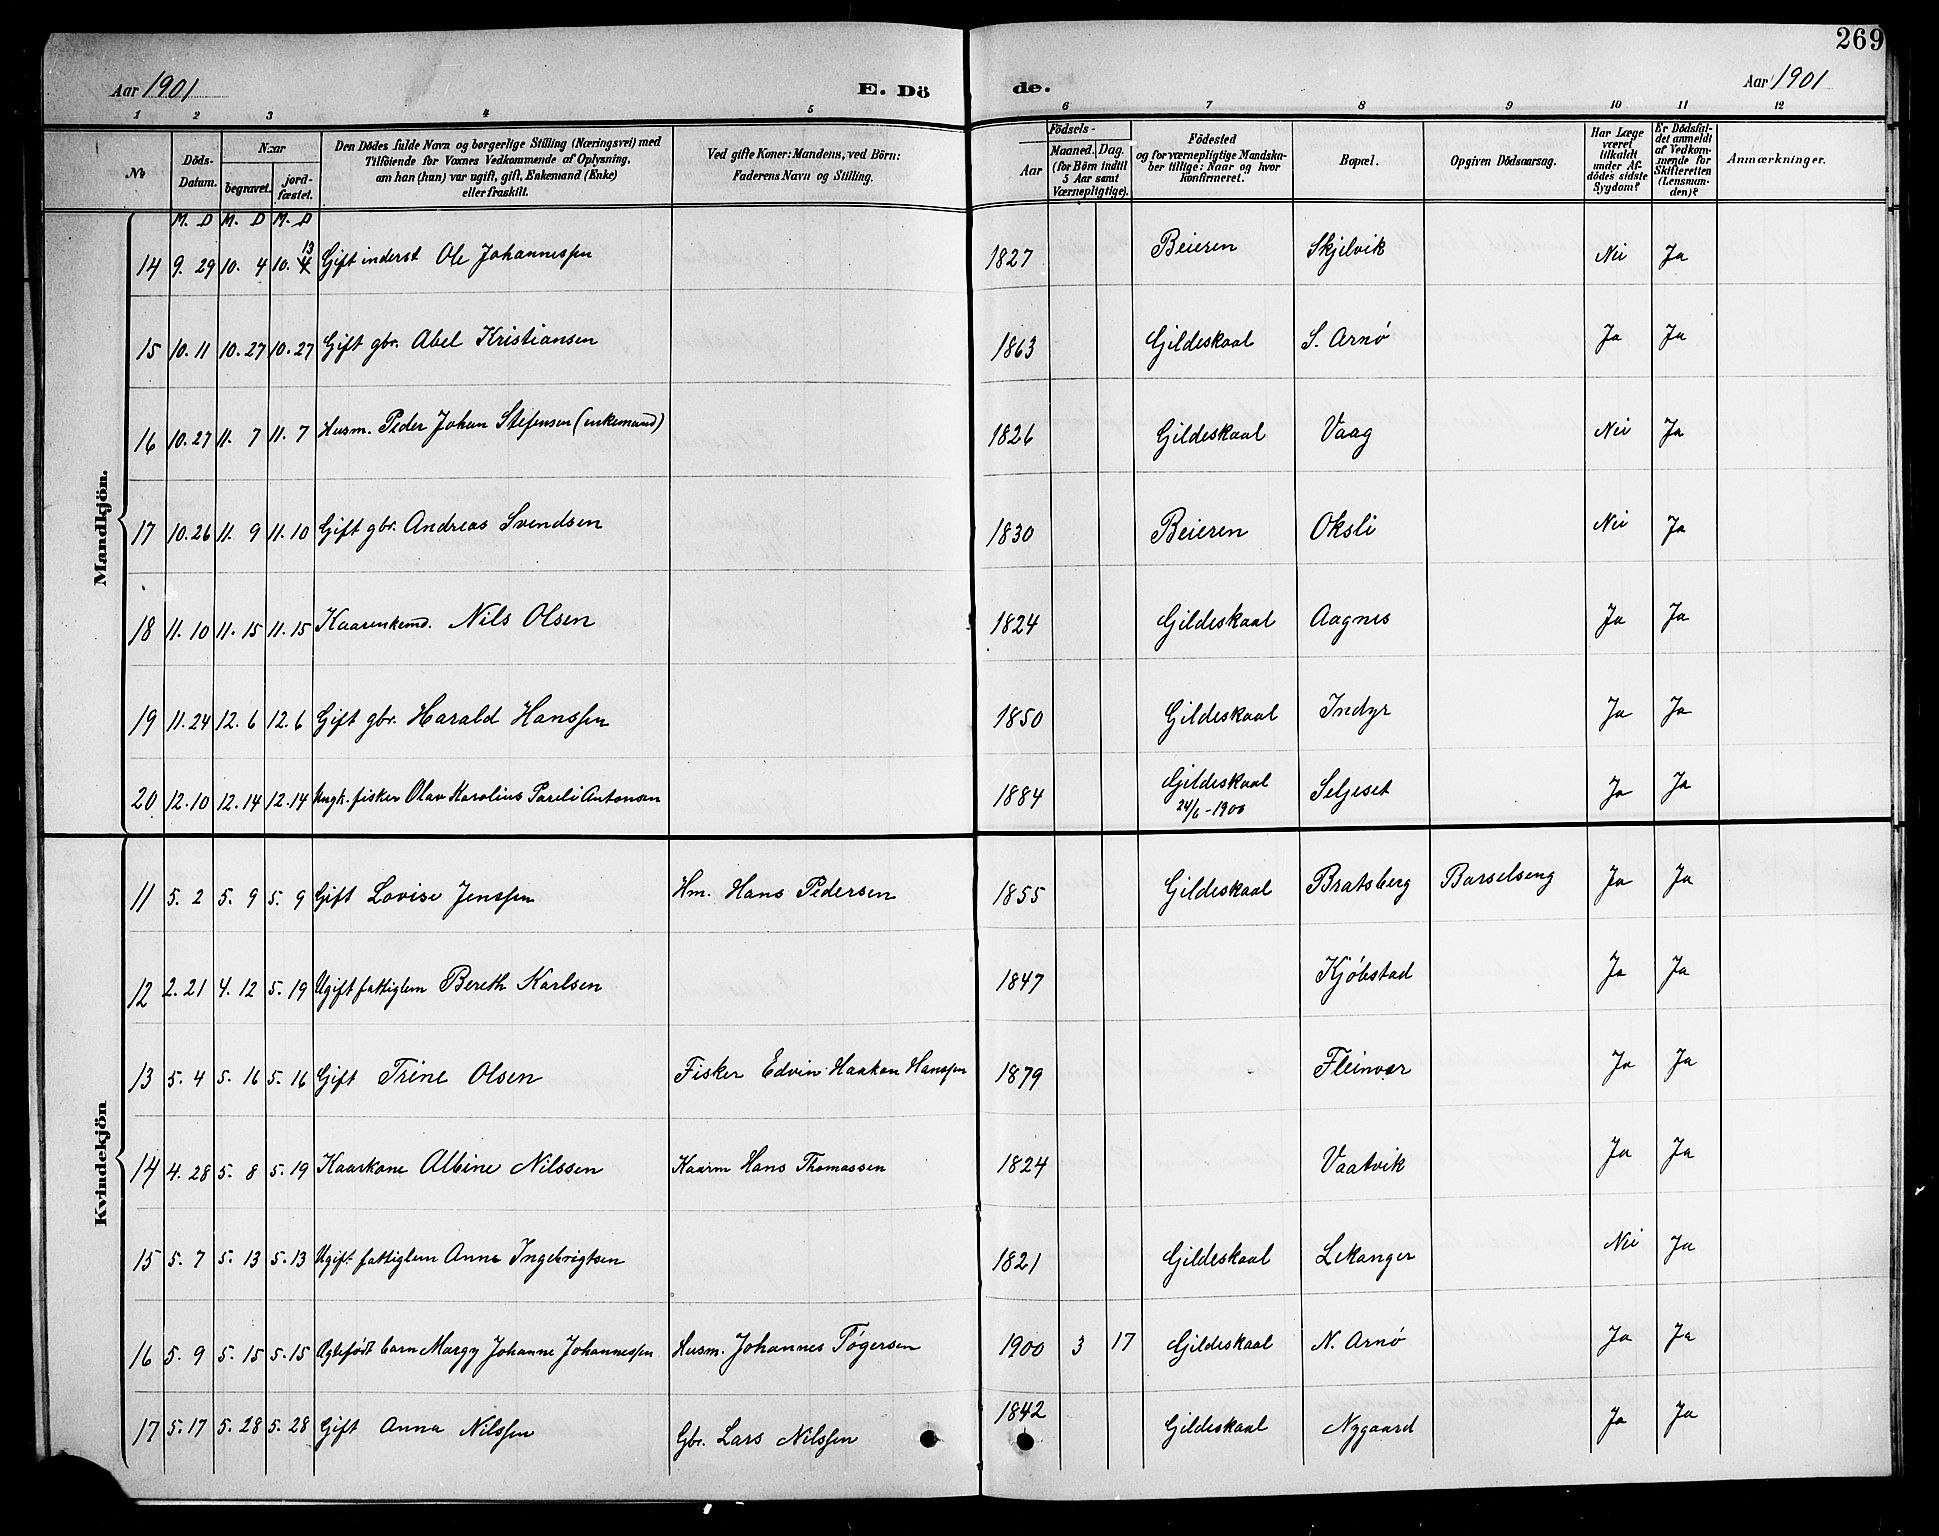 269
Aar 1901 E. Dö de. Aar 1901
1 2 3 4 5 6 7 8 9 10 11 12
No
Döds-Datum.
Naar begravet. jordfæstet.
Den Dödes fulde Navn og borgerlige Stilling (Næringsvei) med Tilföiende for Voxnes Vedkommende af Oplysning, om han (hun) var ugift, gift, Enkemand (Enke) eller fraskilt.
Ved gifte Koner: Mandens, ved Börn: Faderens Navn og Stilling.
Födsels- Aar Maaned. Dag. (for Börn indtil 5 Aar samt Værnepligtige).
Födested og for værnepligtige Mandskaber tillige: Naar og hvor konfirmeret.
Bopæl.
Opgiven Dödsaarsag.
Har Læge været tilkaldt under Afdödes sidste Sygdom?
Er Dödsfaldet anmeldt af Vedkommende for Skifteretten (Lensmanden)?
Anmærkninger.
M. D M. D M. D
Mandkjön.
14 9. 29 10. 4 10. 4 13 Gift inderst Ole Johannessen 1827 Beieren Skjelvik Nei Ja
15 10. 11 10. 27 10. 27 Gift gbr. Abel Kristiansen 1863 Gildeskaal S. Arnø Ja Ja
16 10. 27 11. 7 11. 7 Husm. Peder Johan Stefensen (enkemand) 1826 Gildeskaal Vaag Nei Ja
17 10. 26 11. 9 11. 10 Gift gbr. Andreas Svendsen 1830 Beieren Oksli Nei Ja
18 11. 10 11. 15 11. 15 Kaarenkemd. Nils Olsen 1824 Gildeskaal Aagnes Ja Ja
19 11. 24 12. 6 12. 6 Gift gbr. Harald Hanssen 1850 Gildeskaal Indyr Ja Ja
20 12. 10 12. 14 12. 14 Ungk. fisker Olav Karolius Pareli Antonsen 1884 Gildeskaal 24/6 - 1900 Seljeset Ja Ja
Kvindekjön
11 5. 2 5. 9 5. 9 Gift Lovise Jenssen Hm. Hans Pedersen 1855 Gildeskaal Bratsberg Barselseng Ja Ja
12 2. 21 4. 12 5. 19 Ugift fattiglem Bereth Karlsen 1847 Kjøbstad Ja Ja
13 5. 4 5. 16 5. 16 Gift Trine Olsen Fisker Edvin Haakon Hanssen 1879 Fleinvær Ja Ja
14 4. 28 5. 8 5. 19 Kaarkone Albine Nilssen Kaarm Hans Thomassen 1824 Vaatvik Ja Ja
15 5. 7 5. 13 5. 13 Ugift fattiglem Anne Ingebrigtsen 1821 Gildeskaal Lekanger Nei Ja
16 5. 9 5. 15 5. 15 Ægtefødt barn Margy Johanne Johannessen Husm. Johannes Tøgersen 1900 3 17 Gildeskaal N. Arnø Ja Ja
17 5. 17 5. 28 5. 28 Gift Anna Nilssen Gbr. Lars Nilssen 1842 Gildeskaal Nygaard Ja Ja